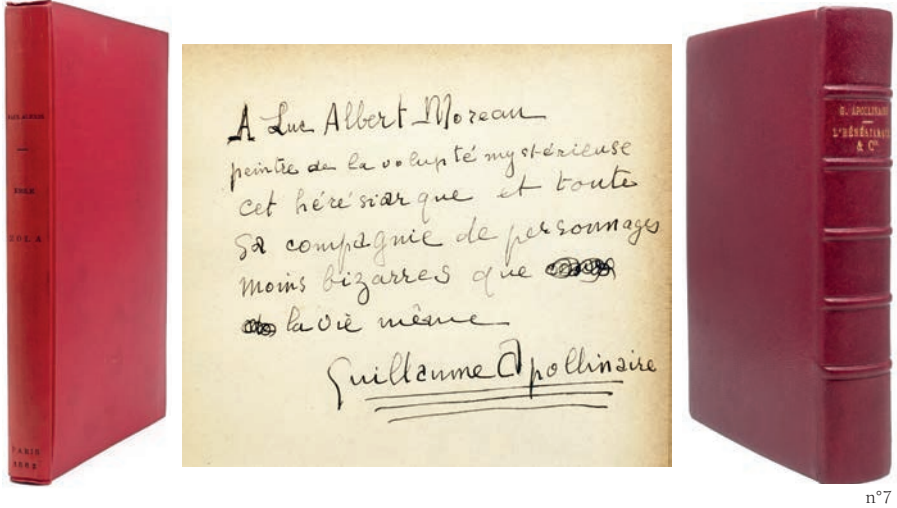 PAUL ALEXIS
EMILE
ZOLA
PARIS
1882
A Luc Albert Moreau
peintre de la volupté mystérieuse
cet hérésiarque et toute
sa compagnie de personnages
moins bizarres que
la vie même
Guillaume Apollinaire
G. APOLLINAIRE
L'HÉRÉSIARQUE
& Cie
n°7